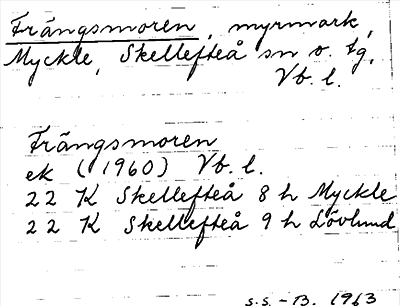 Frängsmoren, myrmark,
Myckle, Skellefteå sn o. tg.
Vb. l.
Frängsmoren
ek (1960) Vb. l.
22 K Skellefteå 8 h Myckle
22 K Skellefteå 9 h Lövlund
S.S. - B. 1963